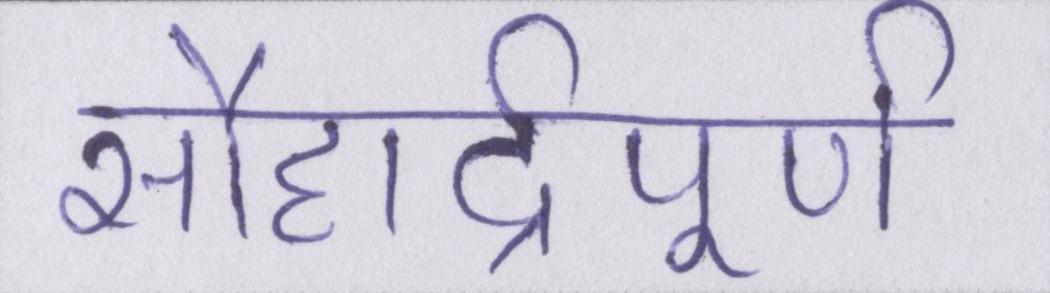 सौहार्द्रपूर्ण